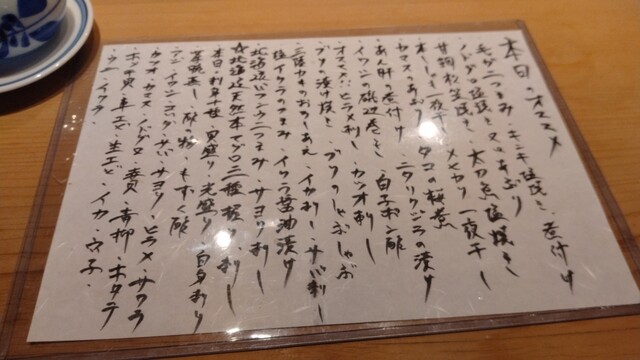 本日のオススメ
毛ガニつまみ・キンキ塩焼き、煮付け
ノドグロ塩焼き 又はあぶり
甘鯛松笠焼き・太刀魚塩焼き
オーしゃも一夜干し・メヒカリ一夜干し
カマスのあぶり・タコの桜煮
あん肝の煮付け・ニタリクジラの漬け
イワシの磯辺巻き・白子ポン酢
オススメ ヒラメ刺し・カツオ刺し
ブリの漬け焼き・ブリのしゃぶしゃぶ
三陸カキのおのりあえ・イカ刺し・サバ刺し
塩イクラのつまみ・イクラ醤油漬け
北海道バフンウニつまみ・サヨリ刺し
☆北海道天然本マグロ三種握り・刺し
本日・刺身十種盛り・光盛り・白身刺り
茶碗蒸し・酢の物・もずく酢
アジ・イワシ・コハダ・サバ・サヨリ・ヒラメ・サワラ
カツオ・カマス・ノドグロ・赤貝・青柳・ホタテ
ホッキ貝・車エビ・生エビ・イカ・穴子・
ウニ・イクラ・